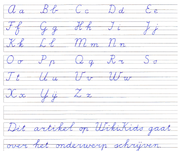 Aa Bb Cc Dd Ee
Ff Gg Hh Ii Jj
Kk Ll Mm Nn
Oo Pp Qq Rr Ss
Tt Uu Vv Ww
Xx Yy Zz
Det artikel op WikiKids gaat
over het onderwerp schrijven.